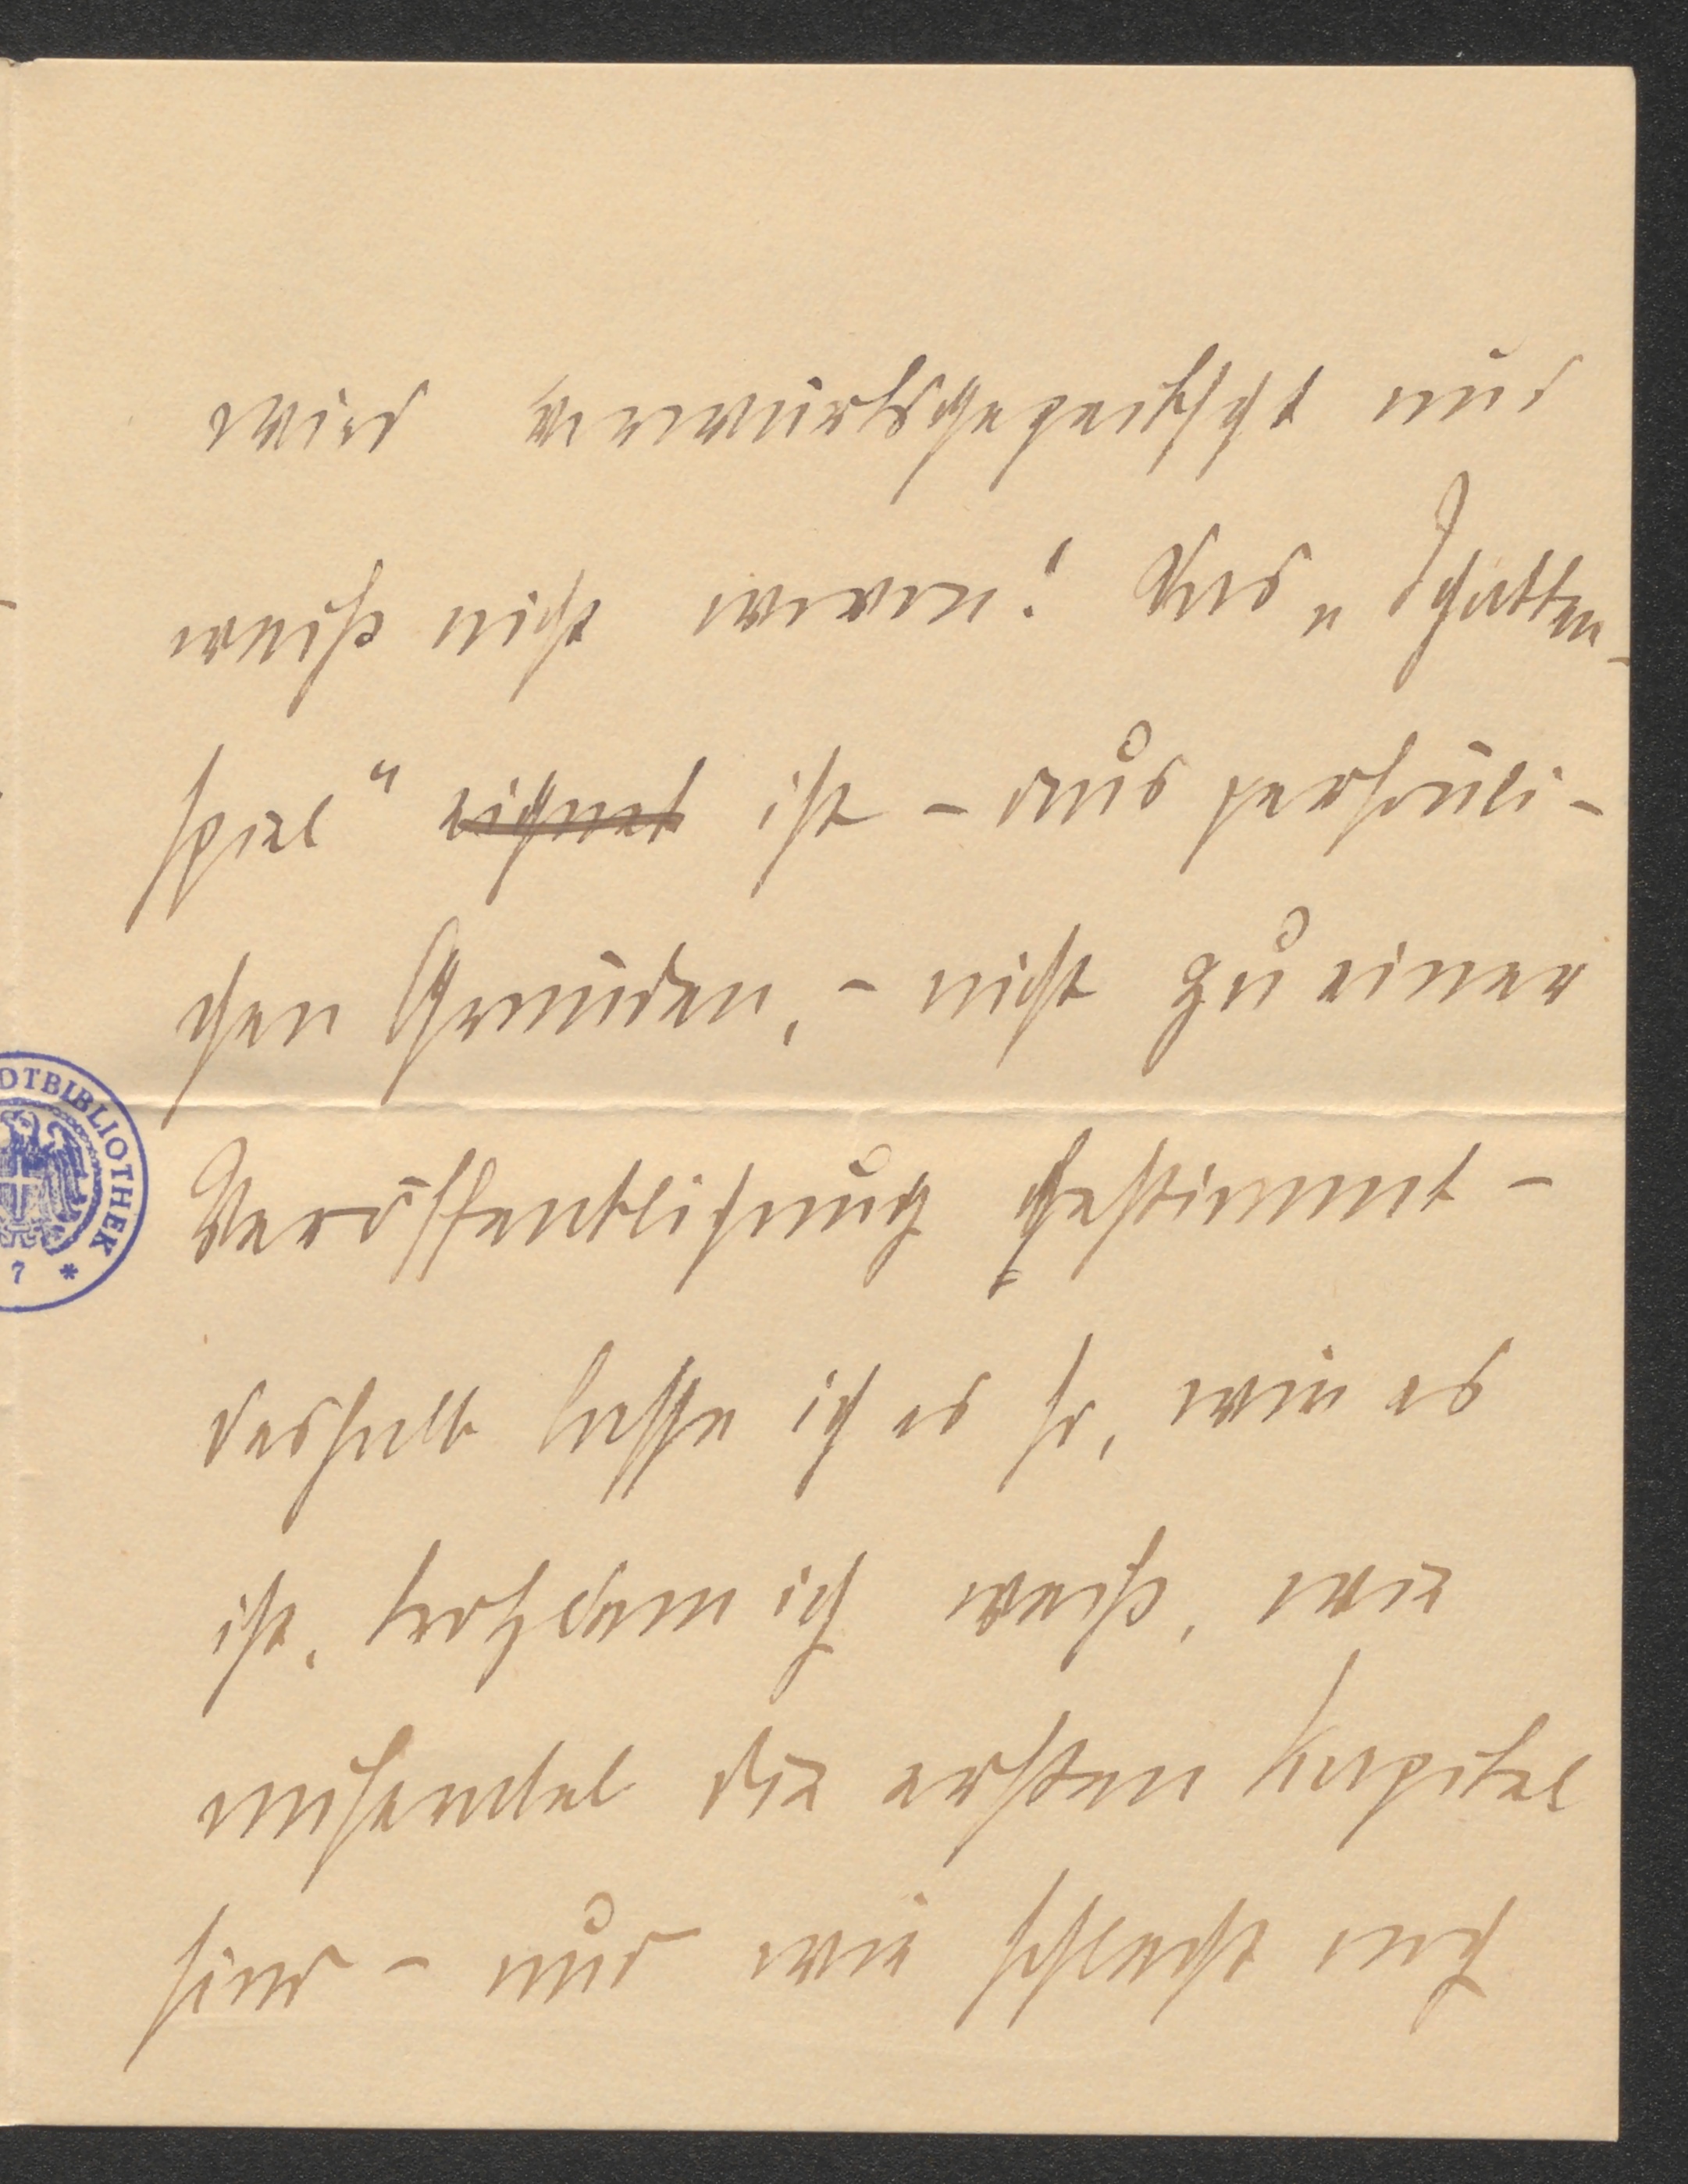 wird vorwärtsgepeitscht und
weiß nicht warum! Das „Schatten-
spiel“ eignet ist – aus persönli-
chen Gründen, – nicht zu einer
Veröffentlichung bestimmt –
deshalb lasse ich es so, wie es
ist, trotzdem ich weiß, wie
miserabel die ersten Kapitel
sind – und wie schlecht auch
OTBIBLIOTHEK
7 *